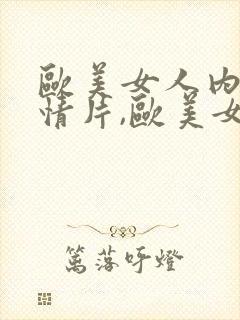 歐美女人內
情片,歐美女
篤落吁燈